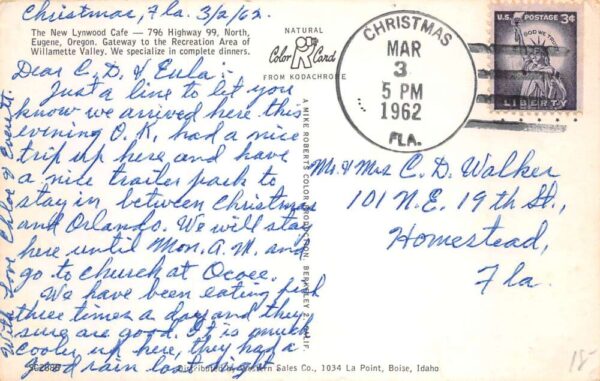 Christmas, Fla. 3/2/62.
The New Lynwood Cafe — 796 Highway 99, North,
Eugene, Oregon. Gateway to the Recreation Area of
Willamette Valley. We specialize in complete dinners.
NATURAL
Color Card
FROM KODACHROME
Dear C. D. & Eula:-
Just a line to let you
know we arrived here this
evening O.K. had a nice
trip up here and have
a nice trailer park to
stay in between Christmas
and Orlando. We will stay
here until Mon. A.M. and
go to church at Ocoee.
We have been eating fish
three times a day and they
sure are good. It is much
cooler up here, they had a
good rain last night.
With Love Chloe & Everett
A MIKE ROBERTS COLOR PRODUCTION, BERKELEY 2, CALIF.
CHRISTMAS
MAR
3
5 PM
1962
FLA.
U.S. POSTAGE 3¢
IN GOD WE TRUST
LIBERTY
Mr. & Mrs C. D. Walker
101 N.E. 19th St.,
Homestead,
Fla.
Distributed by Western Sales Co., 1034 La Point, Boise, Idaho
18-